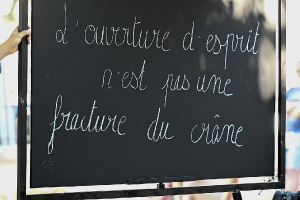 L'ouverture d'esprit
n'est pas une
fracture du crâne